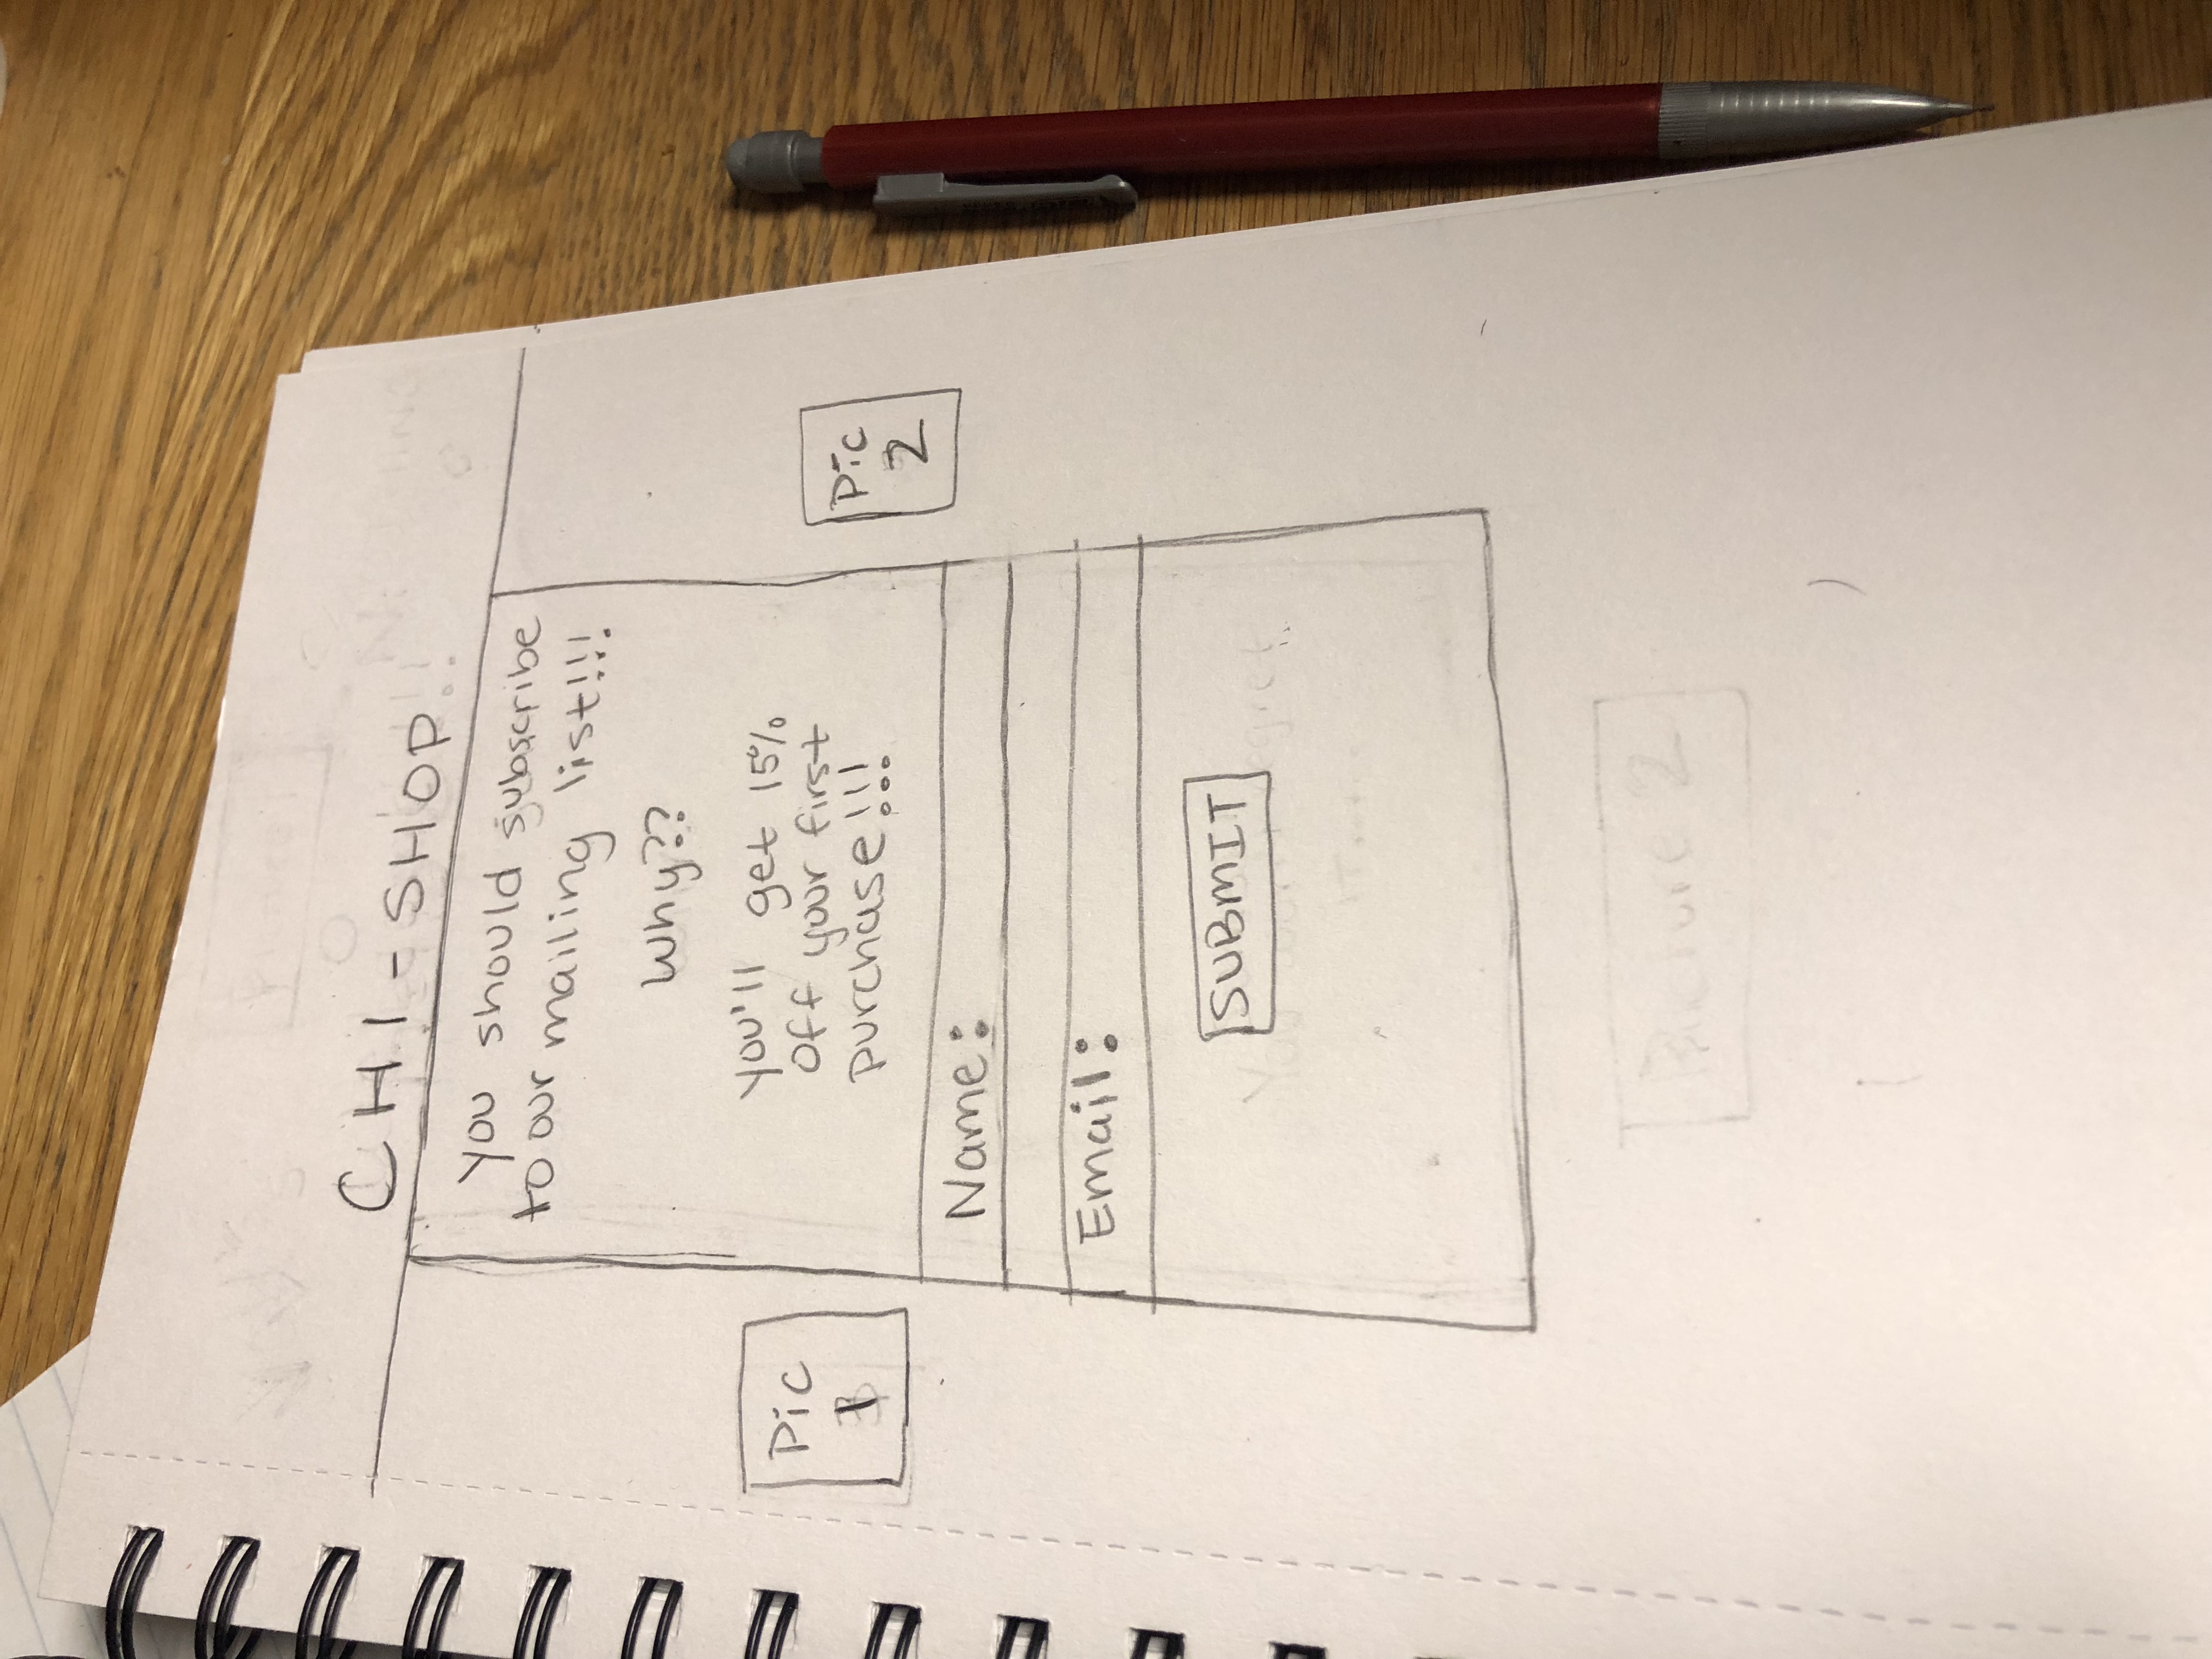 CHI-SHOP
You should subscribe
to our mailing list!!!
Why??
You'll get 15%
off your first
purchase!!!
Pic
1
Pic
2
Name:
Email:
SUBMIT
Picture 2